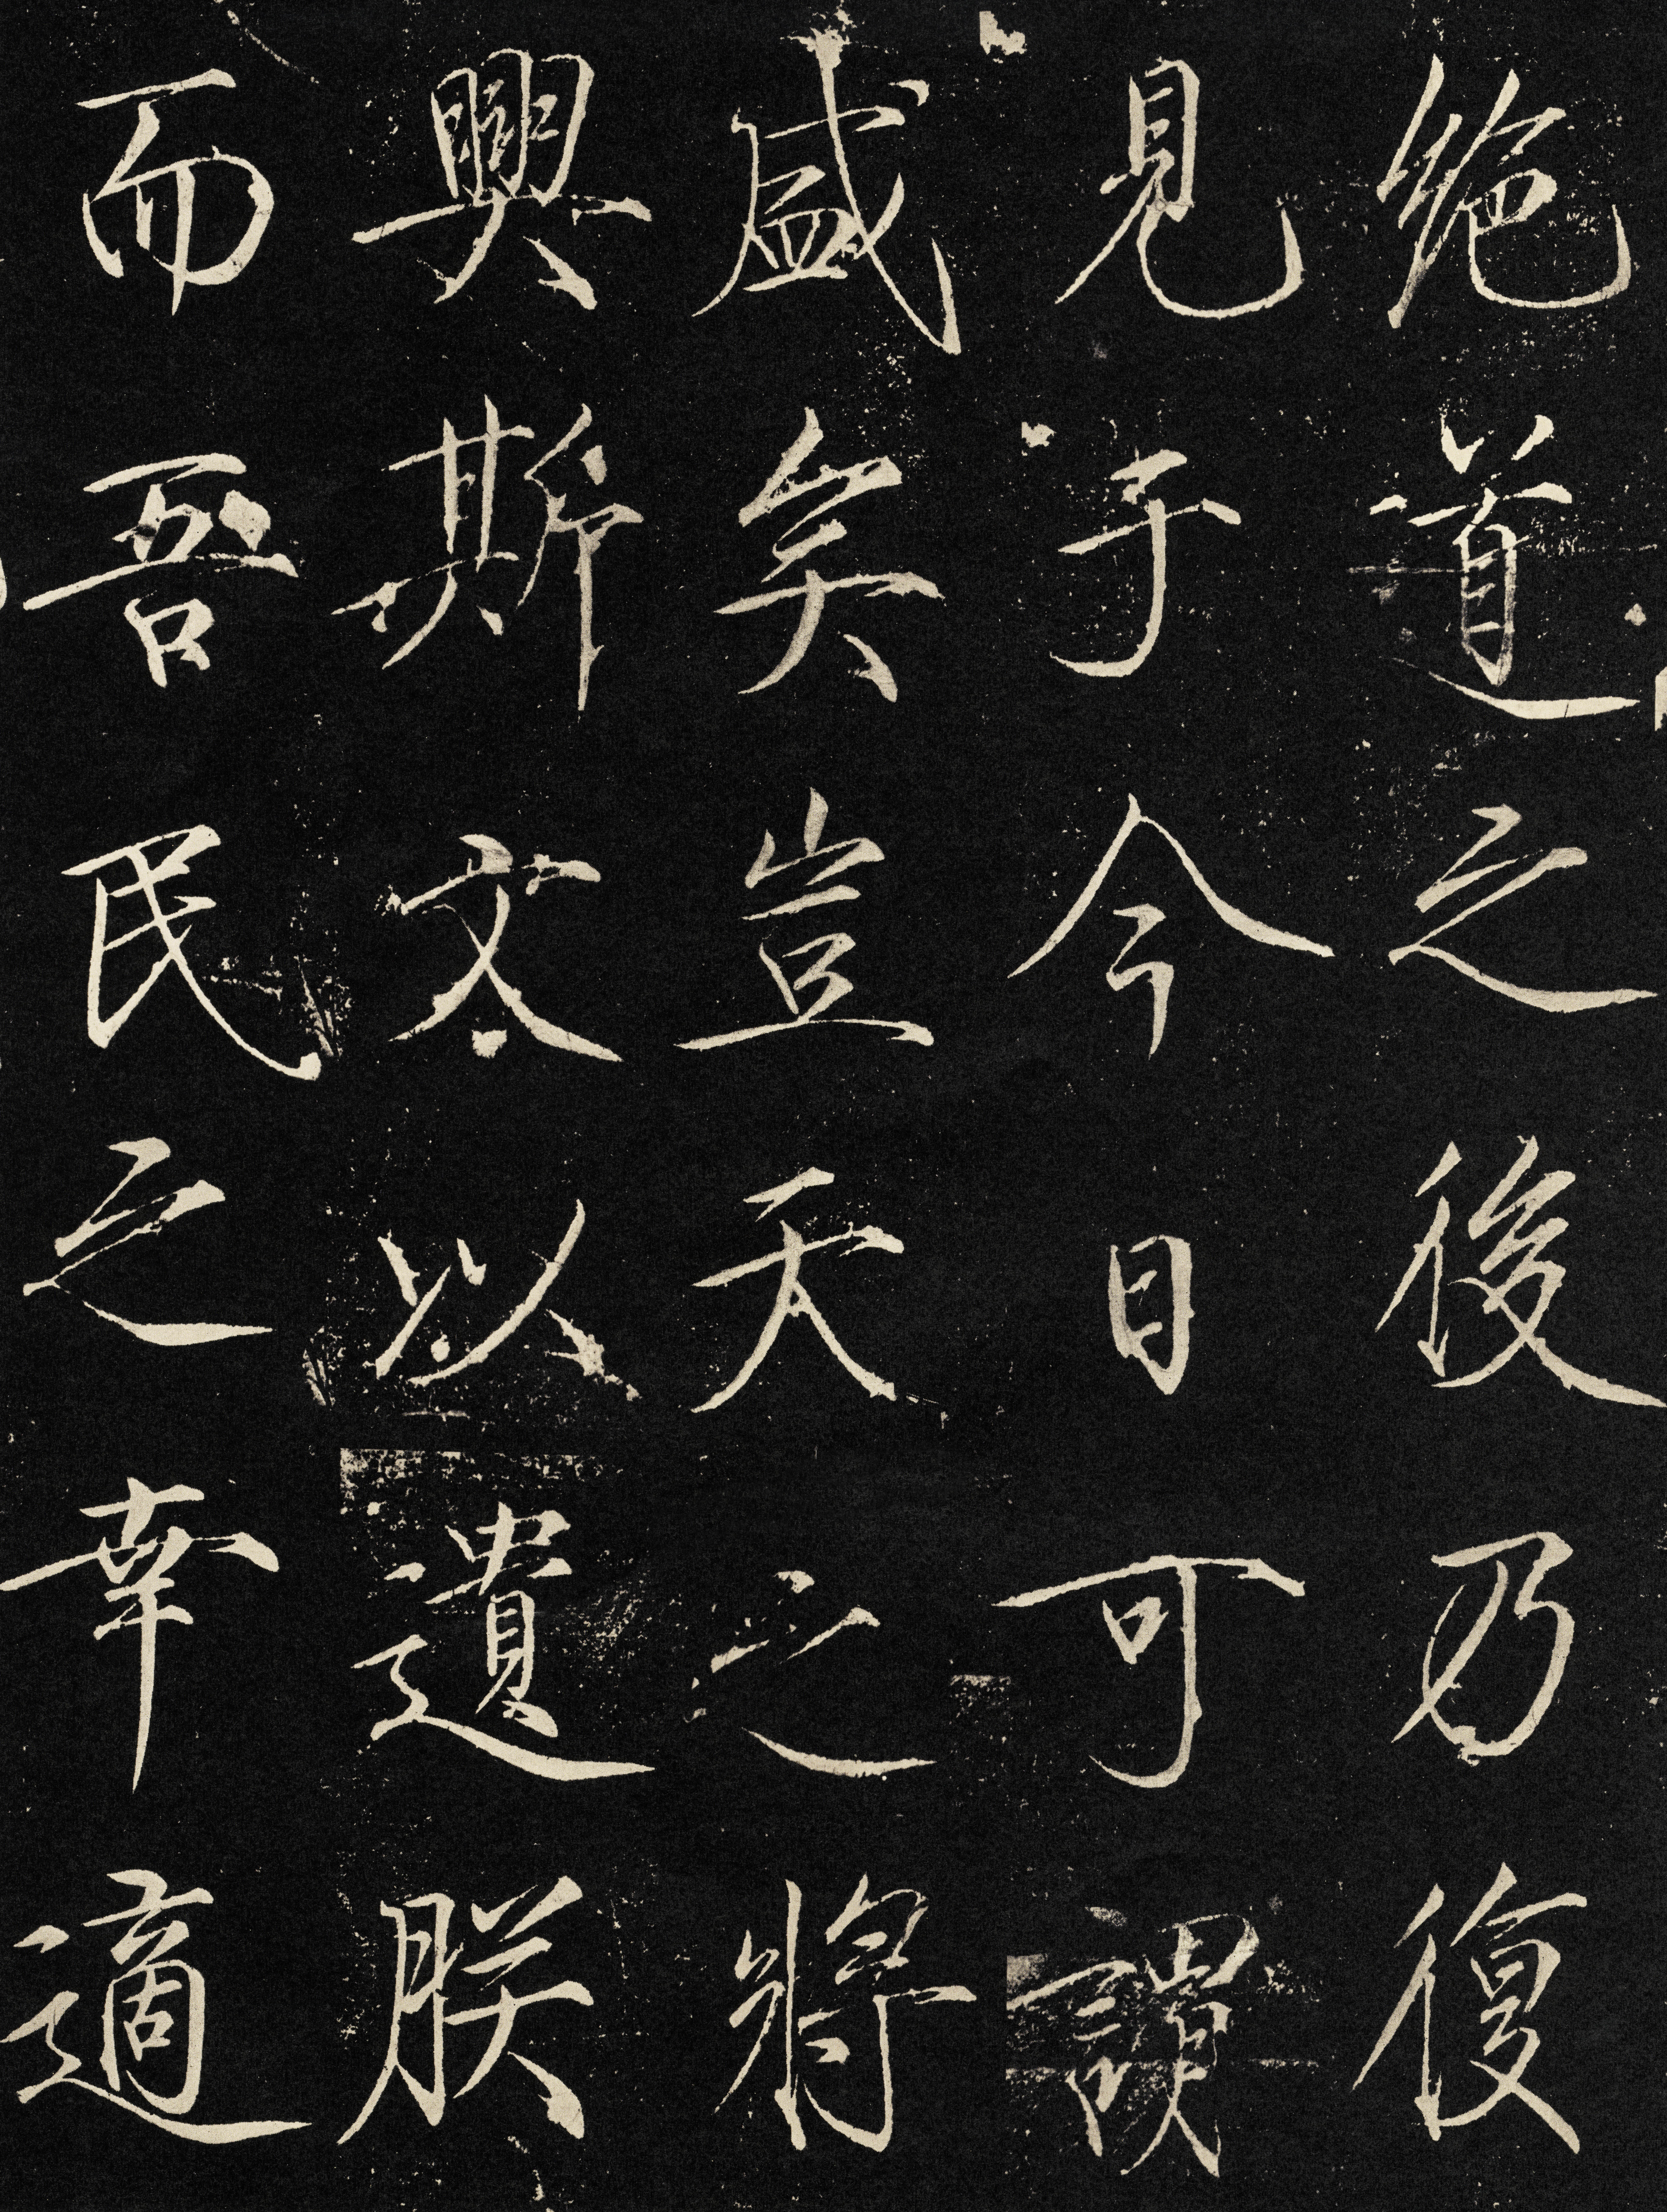 絶道之後乃復
見于今日可謂
盛矣豈天之將
興斯文以遺朕
而吾民之幸適